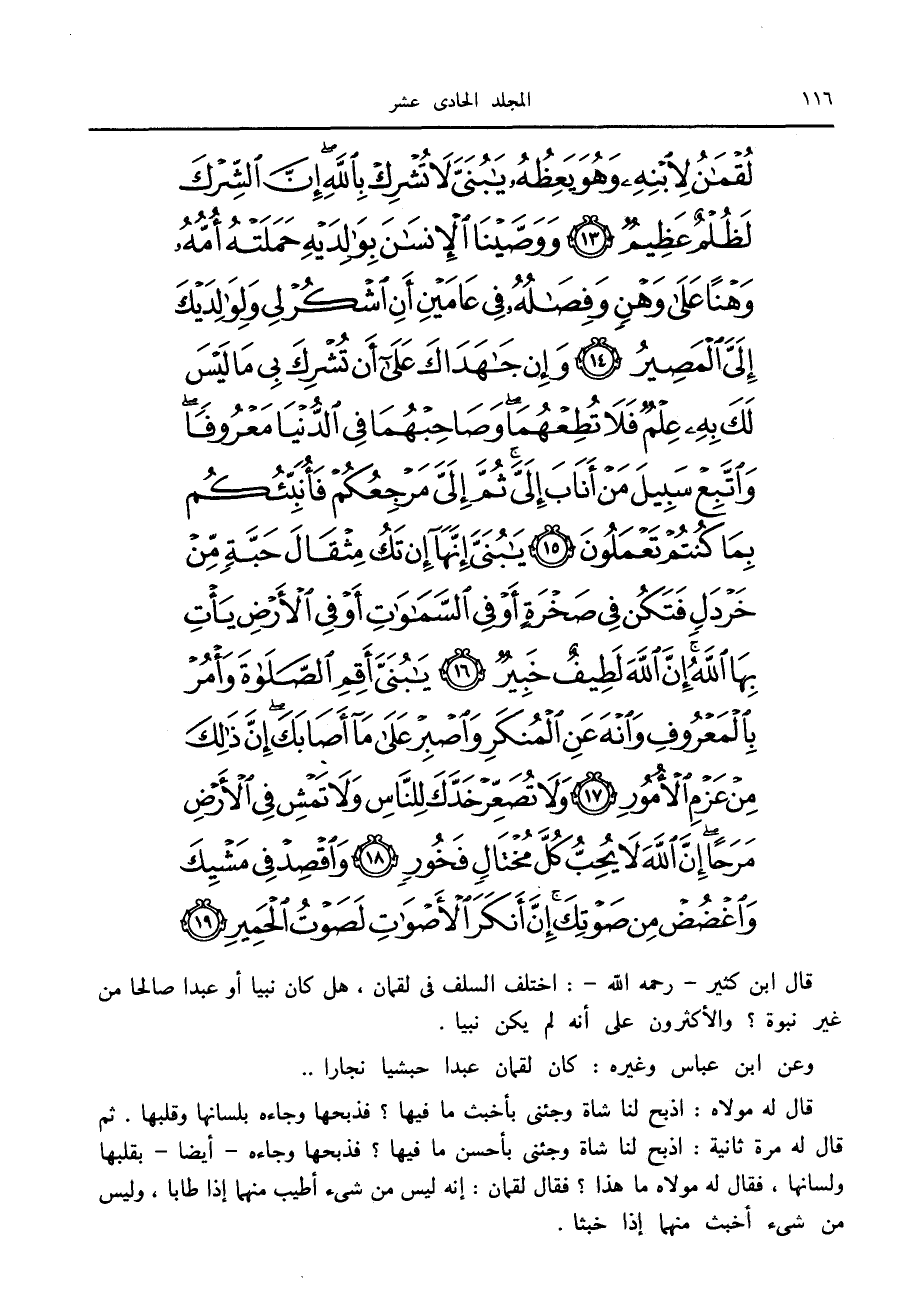 ١١٦ المجلد الحادى عشر
لُقْمَٰنُ لِٱبْنِهِۦ وَهُوَ يَعِظُهُۥ يَٰبُنَىَّ لَا تُشْرِكْ بِٱللَّهِۖ إِنَّ ٱلشِّرْكَ
لَظُلْمٌ عَظِيمٌ ﴿١٣﴾ وَوَصَّيْنَا ٱلْإِنسَٰنَ بِوَٰلِدَيْهِ حَمَلَتْهُ أُمُّهُۥ
وَهْنًا عَلَىٰ وَهْنٍ وَفِصَٰلُهُۥ فِى عَامَيْنِ أَنِ ٱشْكُرْ لِى وَلِوَٰلِدَيْكَ
إِلَىَّ ٱلْمَصِيرُ ﴿١٤﴾ وَإِن جَٰهَدَاكَ عَلَىٰٓ أَن تُشْرِكَ بِى مَا لَيْسَ
لَكَ بِهِۦ عِلْمٌ فَلَا تُطِعْهُمَاۖ وَصَاحِبْهُمَا فِى ٱلدُّنْيَا مَعْرُوفًاۖ
وَٱتَّبِعْ سَبِيلَ مَنْ أَنَابَ إِلَىَّۚ ثُمَّ إِلَىَّ مَرْجِعُكُمْ فَأُنَبِّئُكُم
بِمَا كُنتُمْ تَعْمَلُونَ ﴿١٥﴾ يَٰبُنَىَّ إِنَّهَآ إِن تَكُ مِثْقَالَ حَبَّةٍ مِّنْ
خَرْدَلٍ فَتَكُن فِى صَخْرَةٍ أَوْ فِى ٱلسَّمَٰوَٰتِ أَوْ فِى ٱلْأَرْضِ يَأْتِ
بِهَا ٱللَّهُۚ إِنَّ ٱللَّهَ لَطِيفٌ خَبِيرٌ ﴿١٦﴾ يَٰبُنَىَّ أَقِمِ ٱلصَّلَوٰةَ وَأْمُرْ
بِٱلْمَعْرُوفِ وَٱنْهَ عَنِ ٱلْمُنكَرِ وَٱصْبِرْ عَلَىٰ مَآ أَصَابَكَۖ إِنَّ ذَٰلِكَ
مِنْ عَزْمِ ٱلْأُمُورِ ﴿١٧﴾ وَلَا تُصَعِّرْ خَدَّكَ لِلنَّاسِ وَلَا تَمْشِ فِى ٱلْأَرْضِ
مَرَحًاۖ إِنَّ ٱللَّهَ لَا يُحِبُّ كُلَّ مُخْتَالٍ فَخُورٍ ﴿١٨﴾ وَٱقْصِدْ فِى مَشْيِكَ
وَٱغْضُضْ مِن صَوْتِكَۚ إِنَّ أَنكَرَ ٱلْأَصْوَٰتِ لَصَوْتُ ٱلْحَمِيرِ ﴿١٩﴾
قال ابن كثير - رحمه الله - : اختلف السلف فى لقمان ، هل كان نبيا أو عبدا صالحا من
غير نبوة ؟ والأكثرون على أنه لم يكن نبيا .
وعن ابن عباس وغيره : كان لقمان عبدا حبشيا نجارا ..
قال له مولاه : اذبح لنا شاة وجئنى بأخبث ما فيها ؟ فذبحها وجاءه بلسانها وقلبها . ثم
قال له مرة ثانية : اذبح لنا شاة وجئنى بأحسن ما فيها ؟ فذبحها وجاءه - أيضا - بقلبها
ولسانها ، فقال له مولاه ما هذا ؟ فقال لقمان : إنه ليس من شىء أطيب منهما إذا طابا ، وليس
من شىء أخبث منهما إذا خبثا .